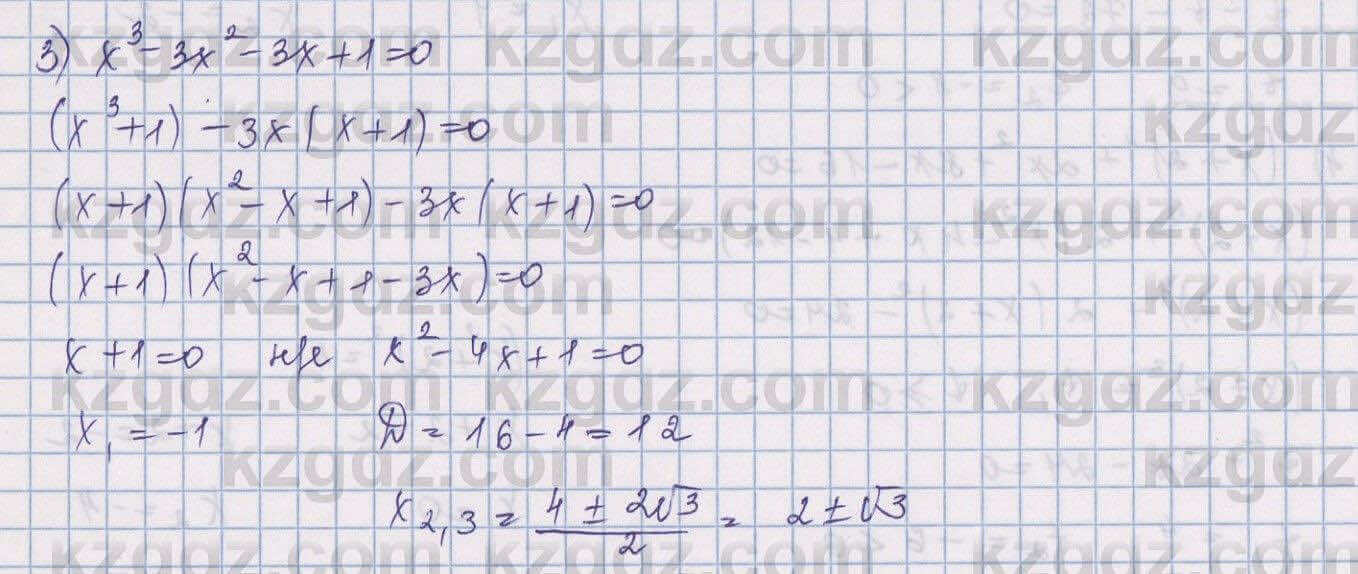 3) x³ - 3x² - 3x + 1 = 0
(x³ + 1) - 3x(x + 1) = 0
(x + 1)(x² - x + 1) - 3x(x + 1) = 0
(x + 1)(x² - x + 1 - 3x) = 0
x + 1 = 0 н/е x² - 4x + 1 = 0
x₁ = -1 D = 16 - 4 = 12
x₂,₃ = (4 ± 2√3)/2 = 2 ± √3
kzgdz.com